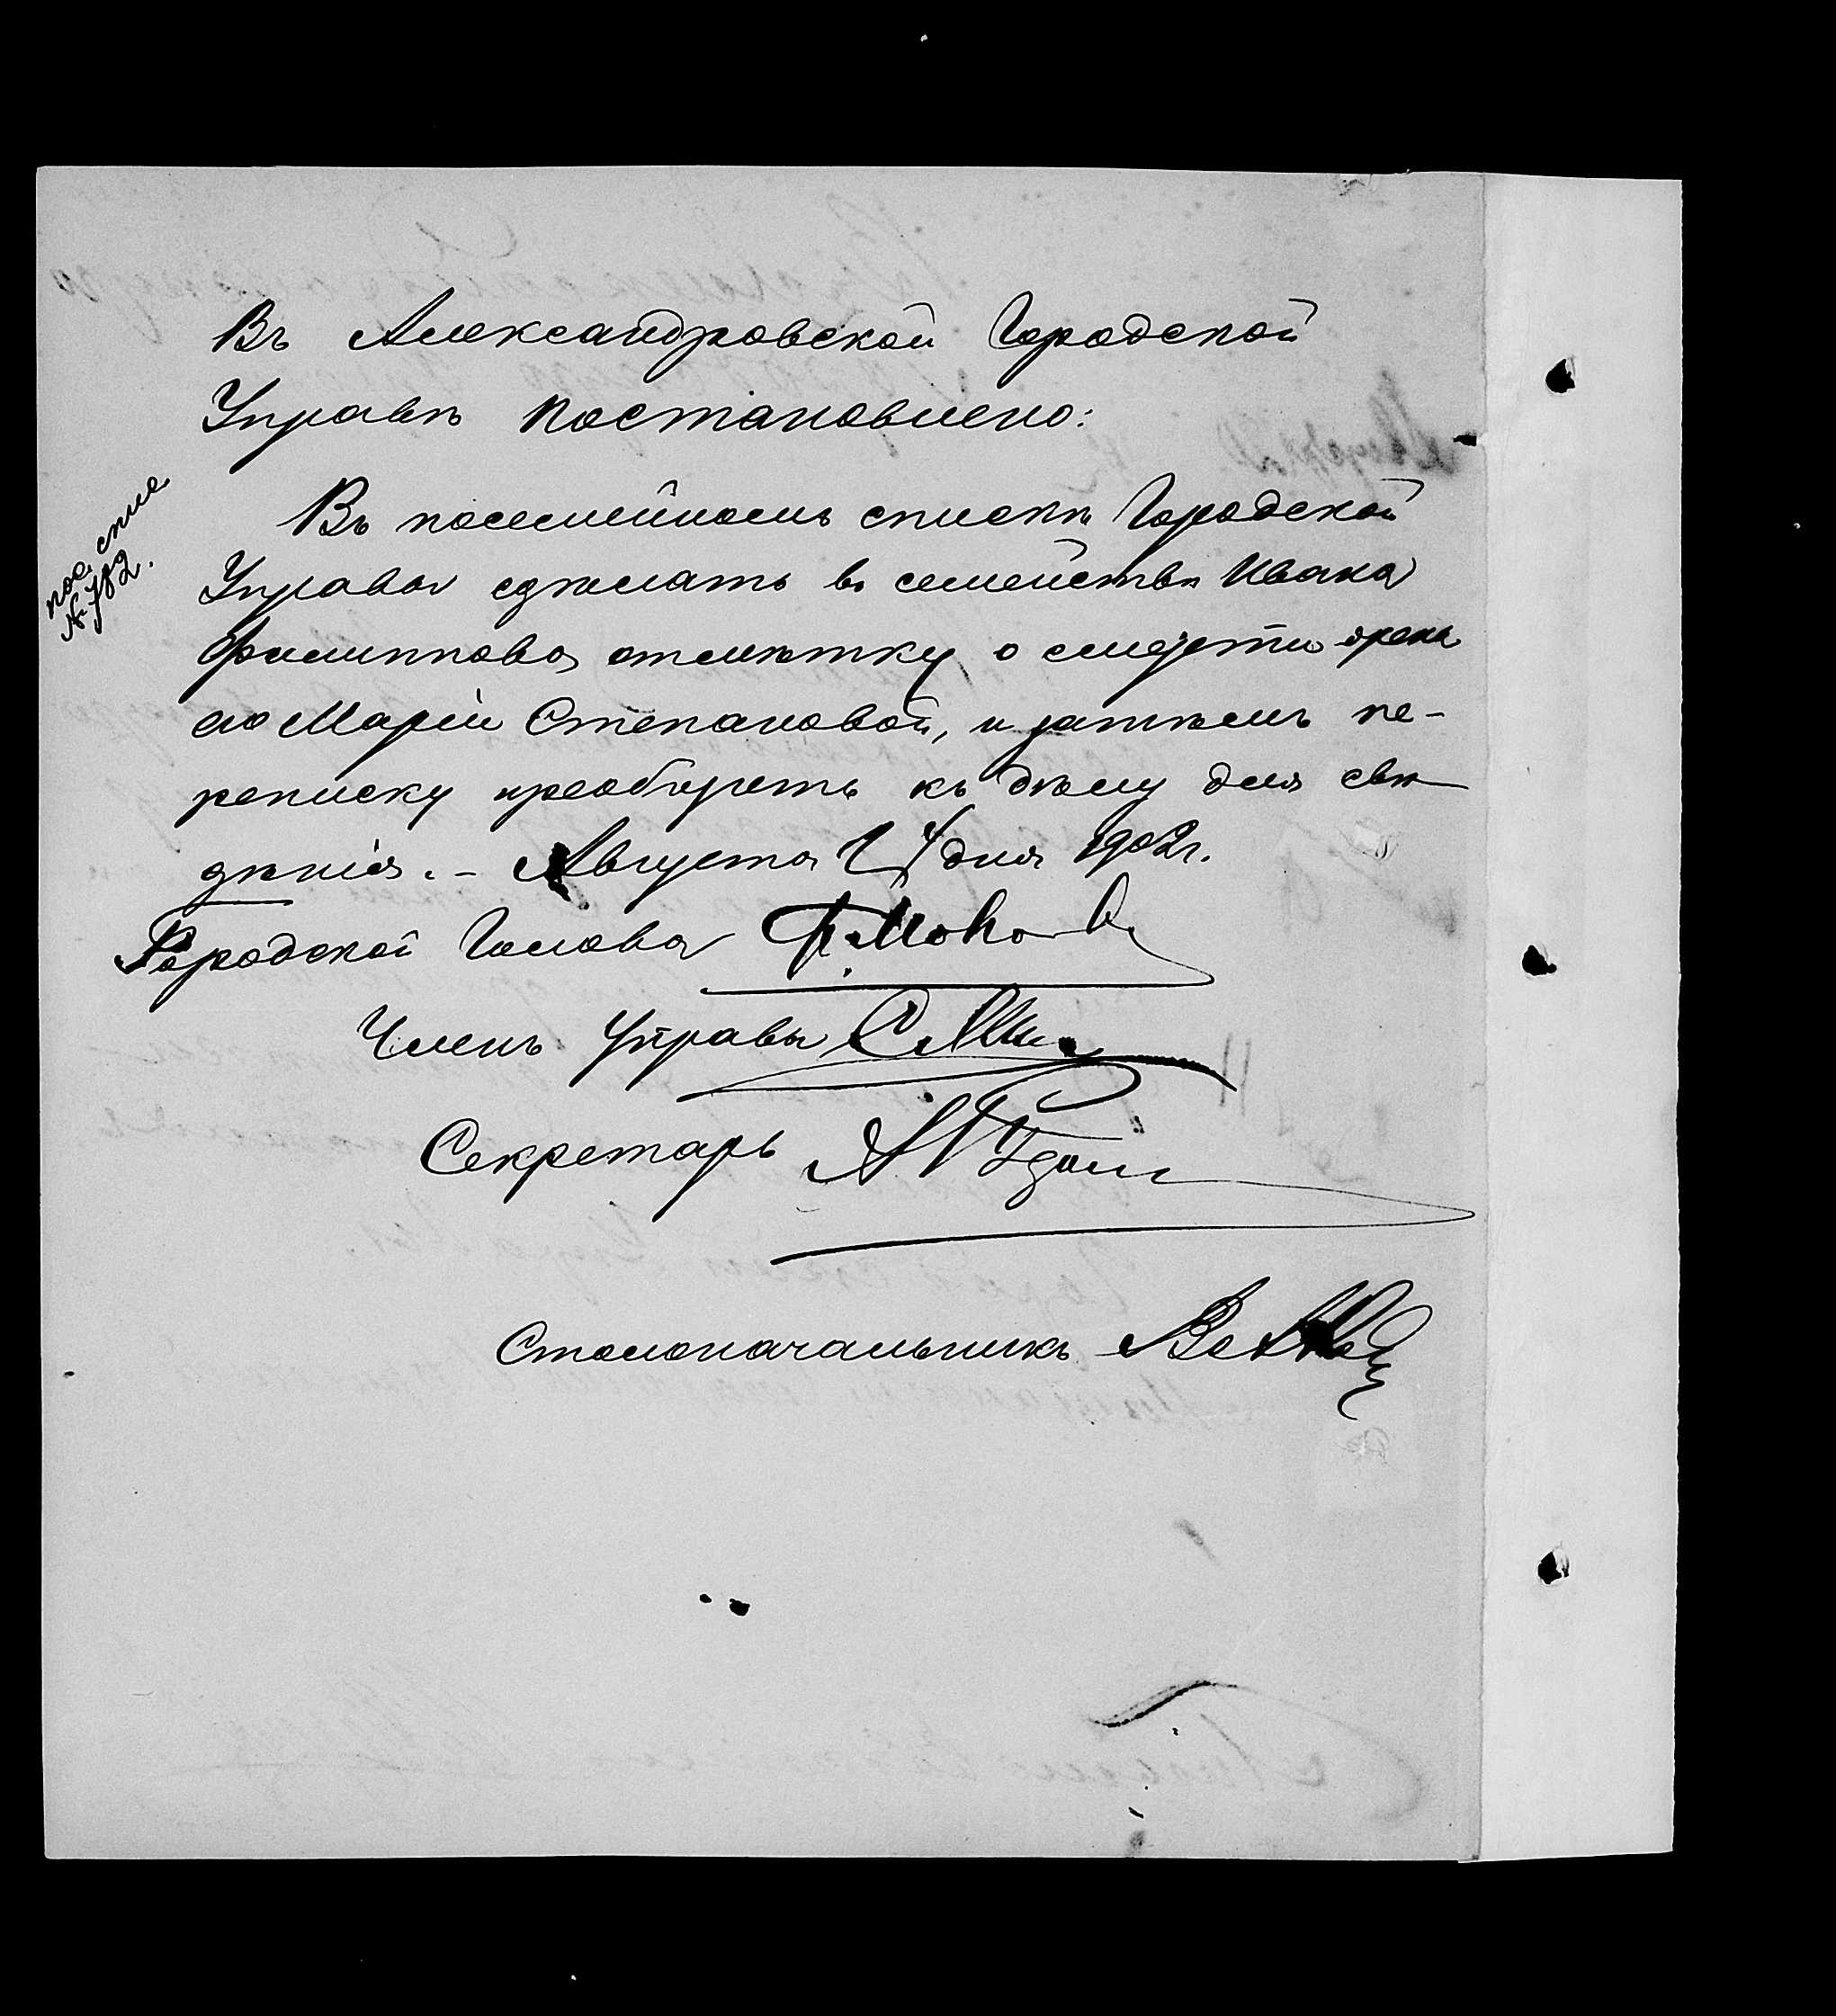 Въ Александровской Городской
Управѣ постановлено:
пос. спис.
№ 782.
Въ посемейномъ спискѣ Городской
Управы сдѣлать въ семействѣ Ивана
Филиппова отмѣтку о смерти жены
его Маріи Степановой, и затѣмъ пе-
реписку приобщить къ дѣлу для свѣ
дѣнія. - Августа дня 1902 г.
Городской Голова
Членъ Управы
Секретарь
Столоначальникъ